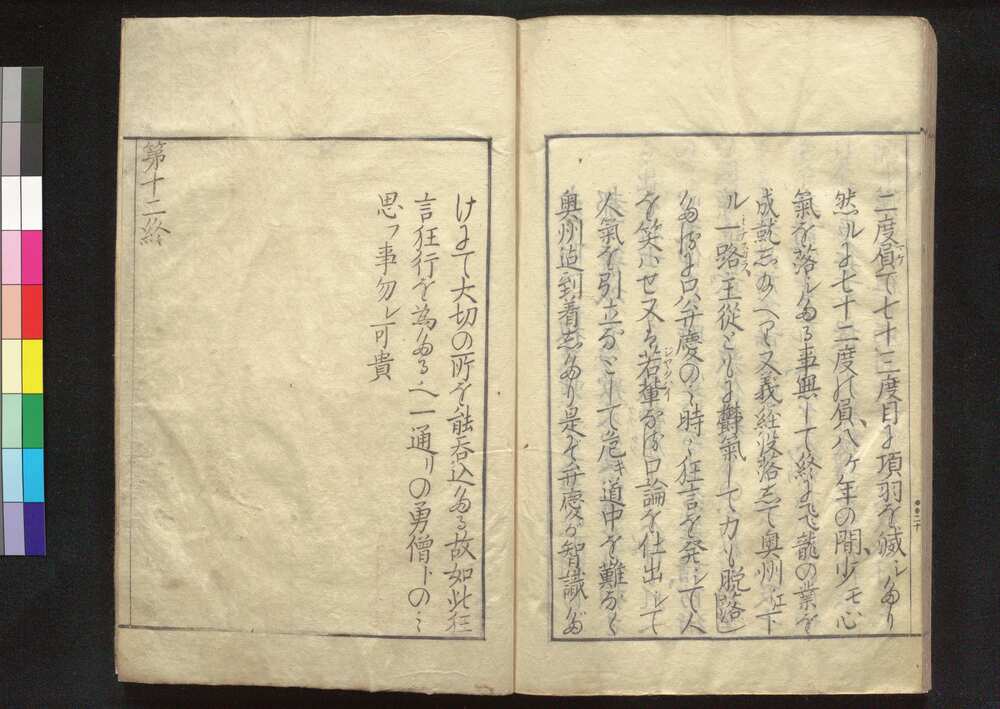 二度負て七十三度目に項羽を滅シたり
然ルに七十二度の負八ケ年の間少モ心
氣を落ルたる事無して終に飛龍の業を
成就志のへり又義経没落して奥州江下
ル一路主従ともに欝氣して力も脱落し
たるに只弁慶のミ時々狂言を発シて人
を笑ハせ又ハ若輩なる口論を仕出して
人氣を引立なとして危キ道中を難なく
奥州迠到着したり是そ弁慶か智識な
けにて大切の所を能呑込たる故如此狂
言狂行を為たる也一通りの勇僧トのミ
思フ事勿レ可貴
第十二終